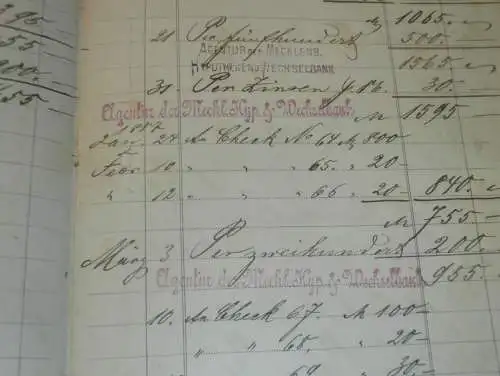 1065.
21 Per fünfhundert M 500.
AGENTUR DER MECKLENB.
HYPOTHEKEN & WECHSELBANK
1565.
31. Per Zinsen p. 86. 30.
Agentur der Meckl. Hyp. & Wechselbank
M 1595
1887
Jan. 27 An Check No 64 M 800
Febr 10 " " 65. " 20-
" 12 " " 66 " 20 840.-
M 755.-
März 3 Per zweihundert 200.
Agentur der Meckl. Hyp. & Wechselbank
955.-
10. An Check 67. M 100-
" " 68. " 20-
69 30.-